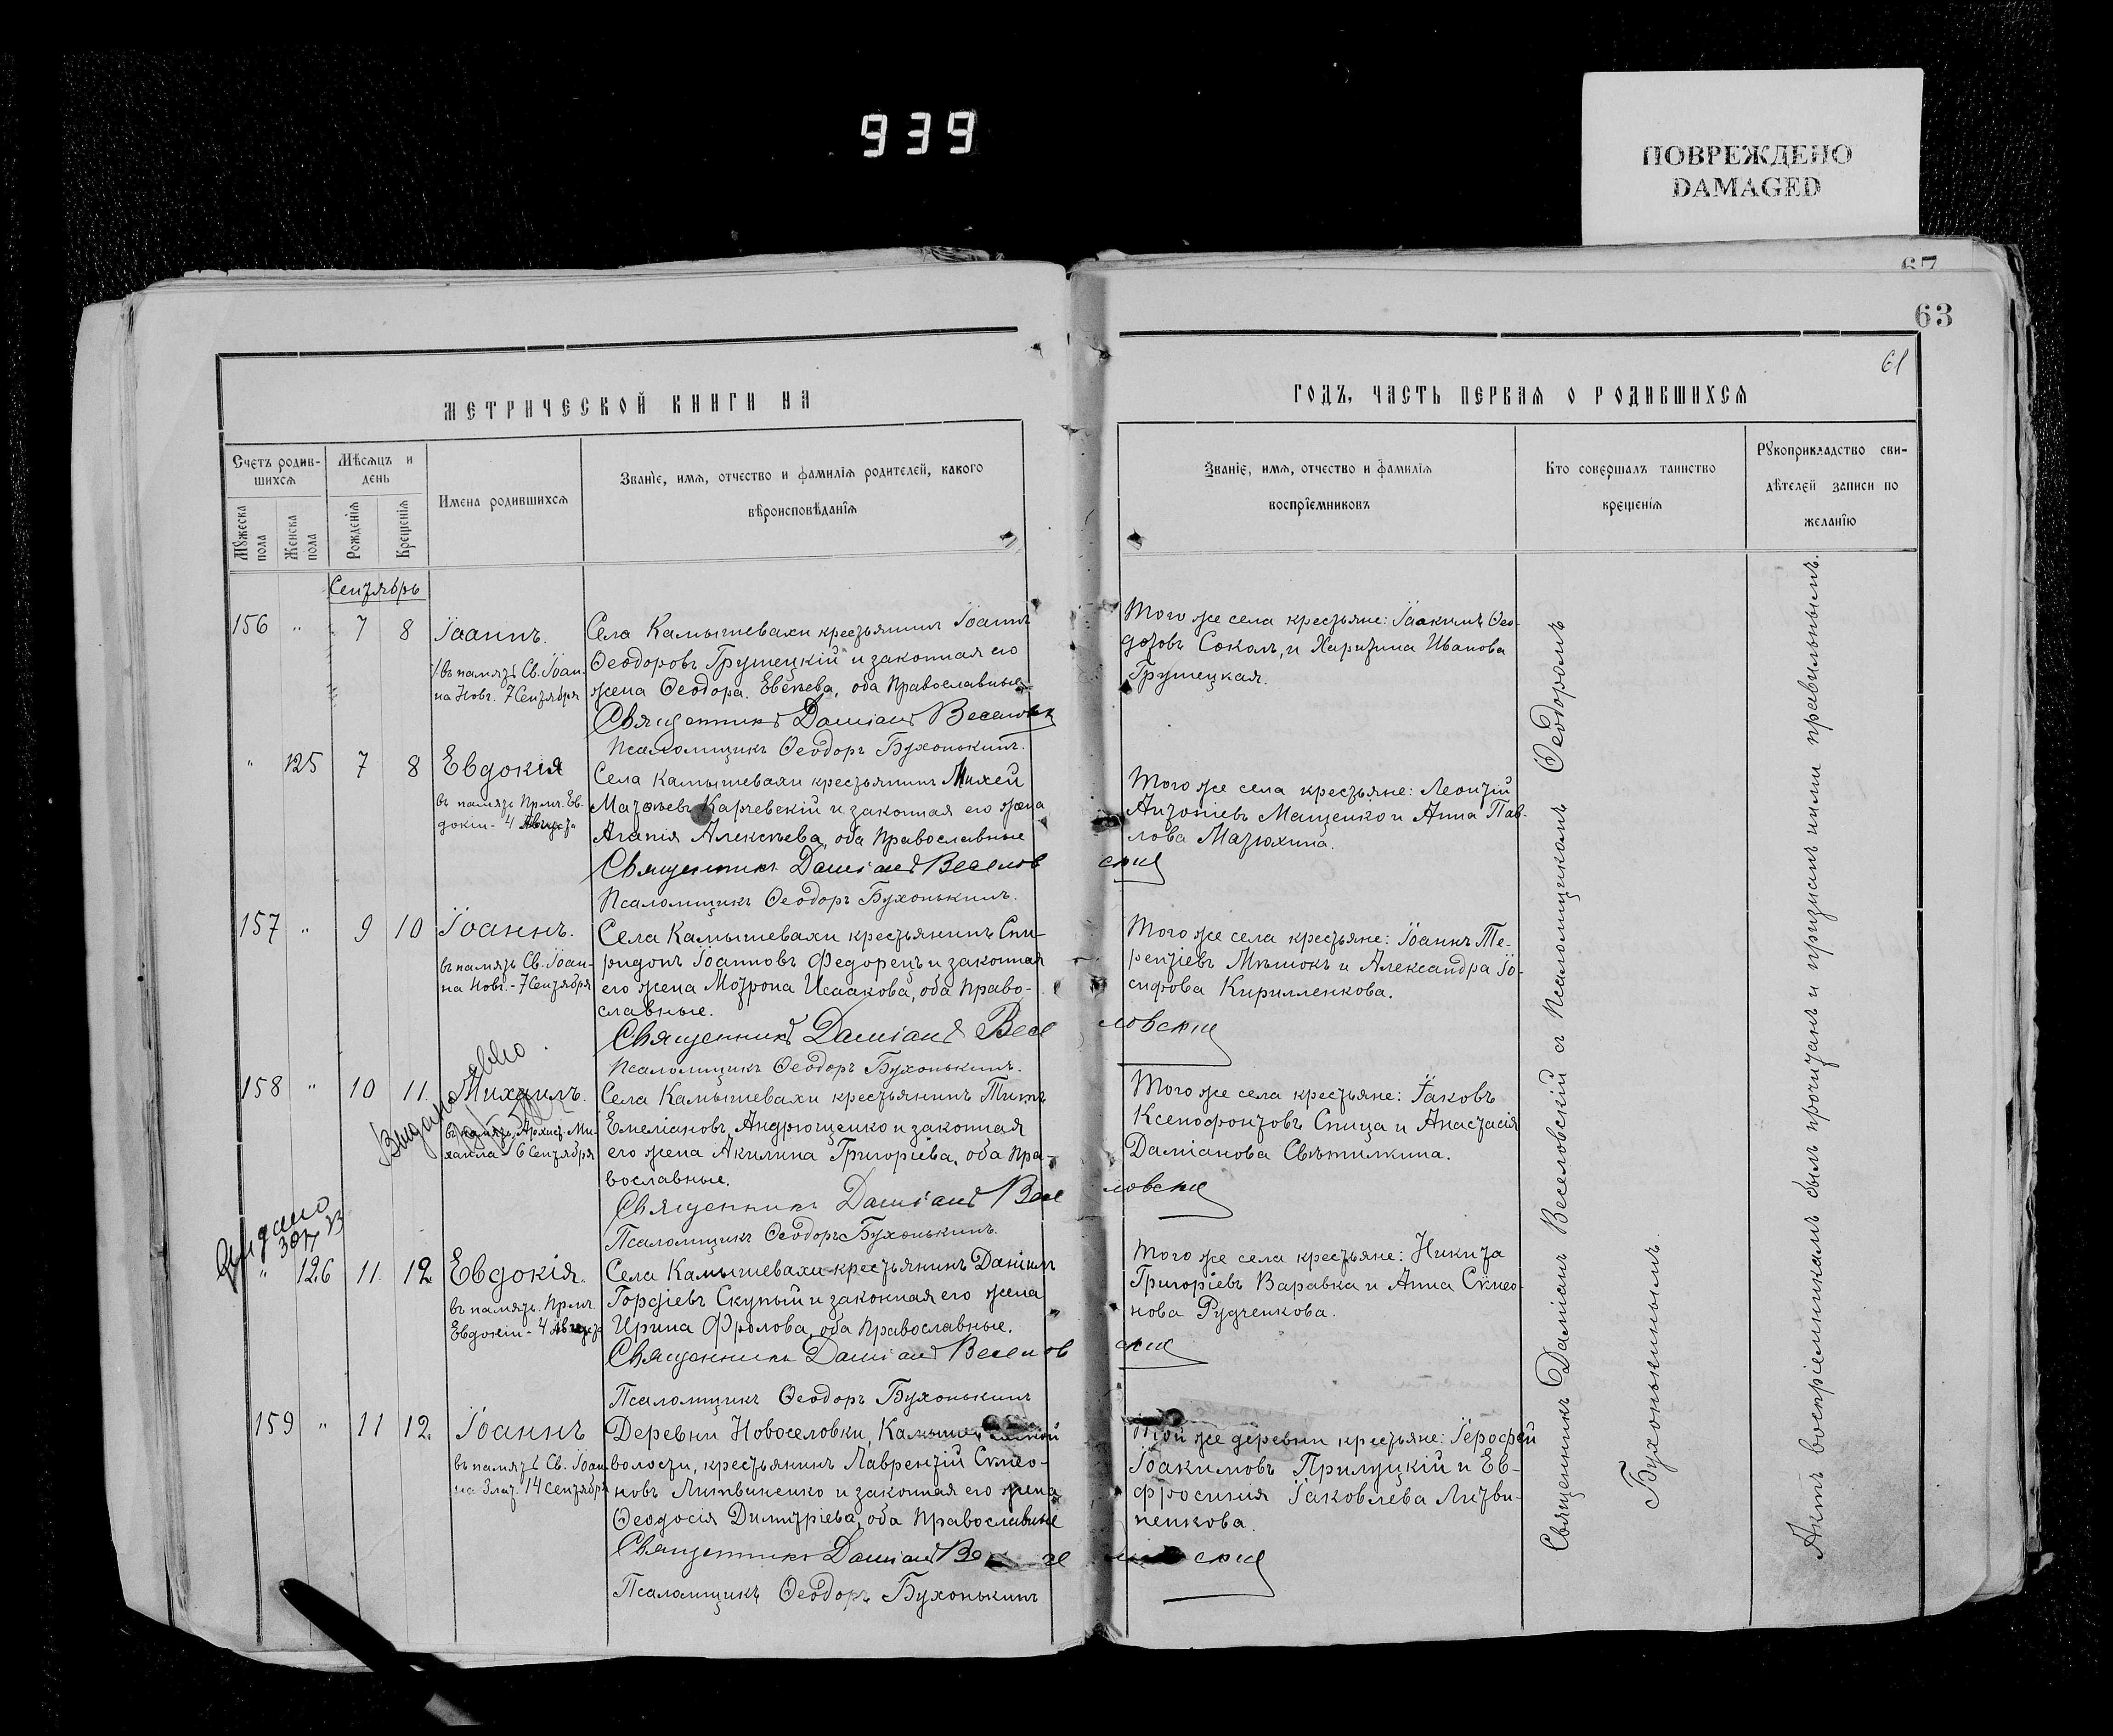 939
ПОВРЕЖДЕНО
DAMAGED
67
63
61
МЕТРИЧЕСКОЙ КНИГИ НА
ГОДЪ, ЧАСТЬ ПЕРВАЯ О РОДИВШИХСЯ
Счетъ родив-
шихся
Мѣсяцъ и
день
Имена родившихся
Званіе, имя, отчество и фамилія родителей, какого
вѣроисповѣданія
Мужеска пола
Женска пола
Рожденія
Крещенія
Званіе, имя, отчество и фамилія
воспріемниковъ
Кто совершалъ таинство
крещенія
Рукоприкладство сви-
дѣтелей записи по
желанію
Сентябрь
156 " 7 8 Іоаннъ.
въ память Св. Іоан-
на Новг. 7 Сентября
Села Камышевахи крестьянинъ Іоаннъ
Ѳеодоровъ Грушецкій и законная его
жена Ѳеодора Евсѣева, оба Православные
Священникъ Даміанъ Веселовск
Псаломщикъ Ѳеодоръ Бухонькинъ.
Того же села крестьяне: Іоакимъ Ѳео-
дотовъ Соколъ, и Харитина Иванова
Грушецкая.
" 125 7 8 Евдокія
въ память Прмч. Ев-
докіи - 4 Августа
Села Камышевахи крестьянинъ Михей
Матѳѣевъ Карчевскій и законная его жена
Агапія Алексѣева, оба Православные
Священникъ Даміанъ Веселовскій
Псаломщикъ Ѳеодоръ Бухонькинъ.
Того же села крестьяне: Леонтій
Антоніевъ Мащенко и Анна Пав-
лова Матюхина.
157 " 9 10 Іоаннъ.
въ память Св. Іоан-
на Новг. - 7 Сентября
Села Камышевахи крестьянинъ Спи-
ридонъ Іоанновъ Федорецъ и законная
его жена Мотрона Исаакова, оба Право-
славные.
Священникъ Даміанъ Веселовскій
Псаломщикъ Ѳеодоръ Бухонькинъ.
Того же села крестьяне: Іоаннъ Те-
рентіевъ Мѣшокъ и Александра Іо-
сифова Кирилленкова.
Выдано
158 " 10 11. Михаилъ.
въ память Архист. Ми-
хаила - 6 Сентября
Села Камышевахи крестьянинъ Титъ
Емеліановъ Андрющенко и законная
его жена Акилина Григоріева, оба Пра-
вославные.
Священникъ Даміанъ Веселовскій
Псаломщикъ Ѳеодоръ Бухонькинъ.
Того же села крестьяне: Іаковъ
Ксенофонтовъ Спица и Анастасія
Даміанова Свѣтилкина.
Выдано
" 126 11. 12. Евдокія.
въ память Прмч.
Евдокіи - 4 Августа
Села Камышевахи крестьянинъ Даніилъ
Гордіевъ Скупый и законная его жена
Ирина Фролова, оба Православные.
Священникъ Даміанъ Веселовскій
Псаломщикъ Ѳеодоръ Бухонькинъ
Того же села крестьяне: Никита
Григоріевъ Варавка и Анна Симео-
нова Рудченкова.
159 " 11 12. Іоаннъ
въ память Св. Іоан-
на Злат. 14 Сентября
Деревни Новоселовки,
волости, крестьянинъ Лаврентій Симео-
новъ Литвиненко и законная его жена
Ѳеодосія Димитріева, оба Православные
Священникъ Даміанъ
Псаломщикъ Ѳеодоръ Бухонькинъ
Той же деревни крестьяне: Іероѳей
Іоакимовъ Прилуцкій и Ев-
фросинія Іаковлева Литви-
ненкова.
Священникъ Даміанъ Веселовскій съ Псаломщикомъ Ѳеодоромъ
Бухонькинымъ.
Актъ воспріемникамъ былъ прочитанъ и признанъ ими правильнымъ.